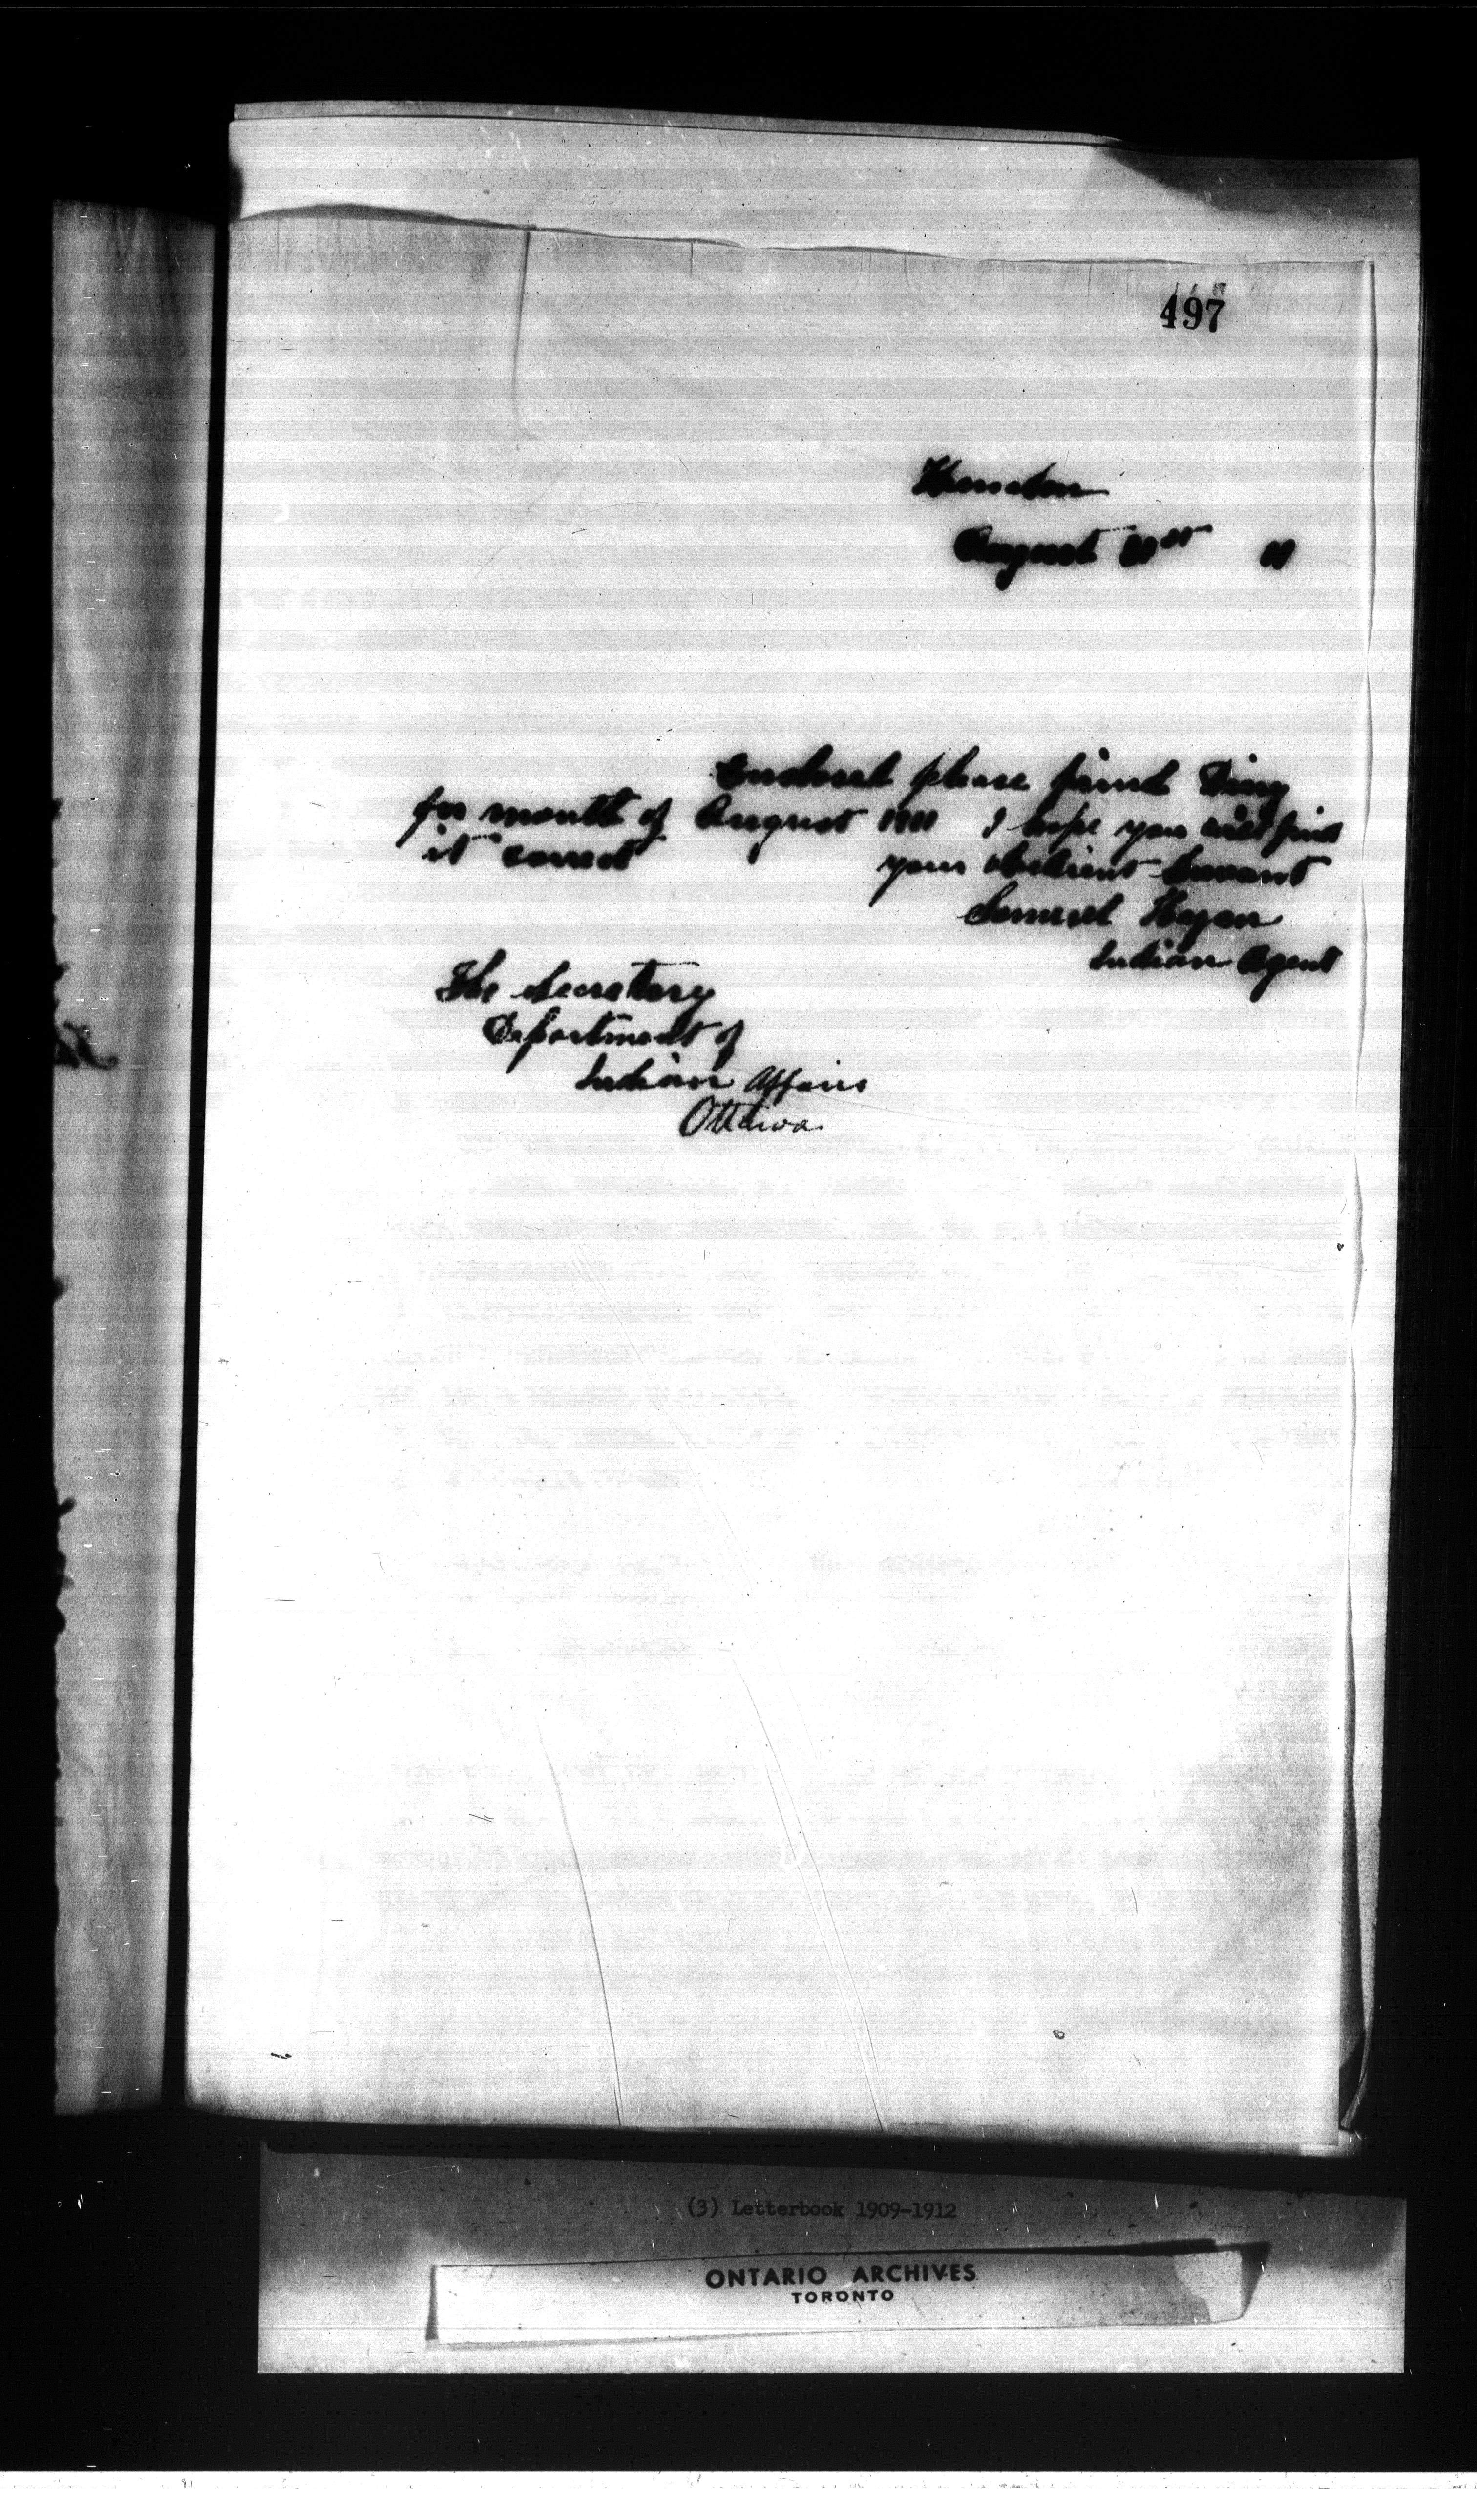 497
August 11
Enclosed please find Diary
for month of August 1911 I hope you will find
it correct
your obedient Servant
Samuel Hagan
Indian Agent
The Secretary
Department of
Indian Affairs
Ottawa
(3) Letterbook 1909-1912
ONTARIO ARCHIVES
TORONTO